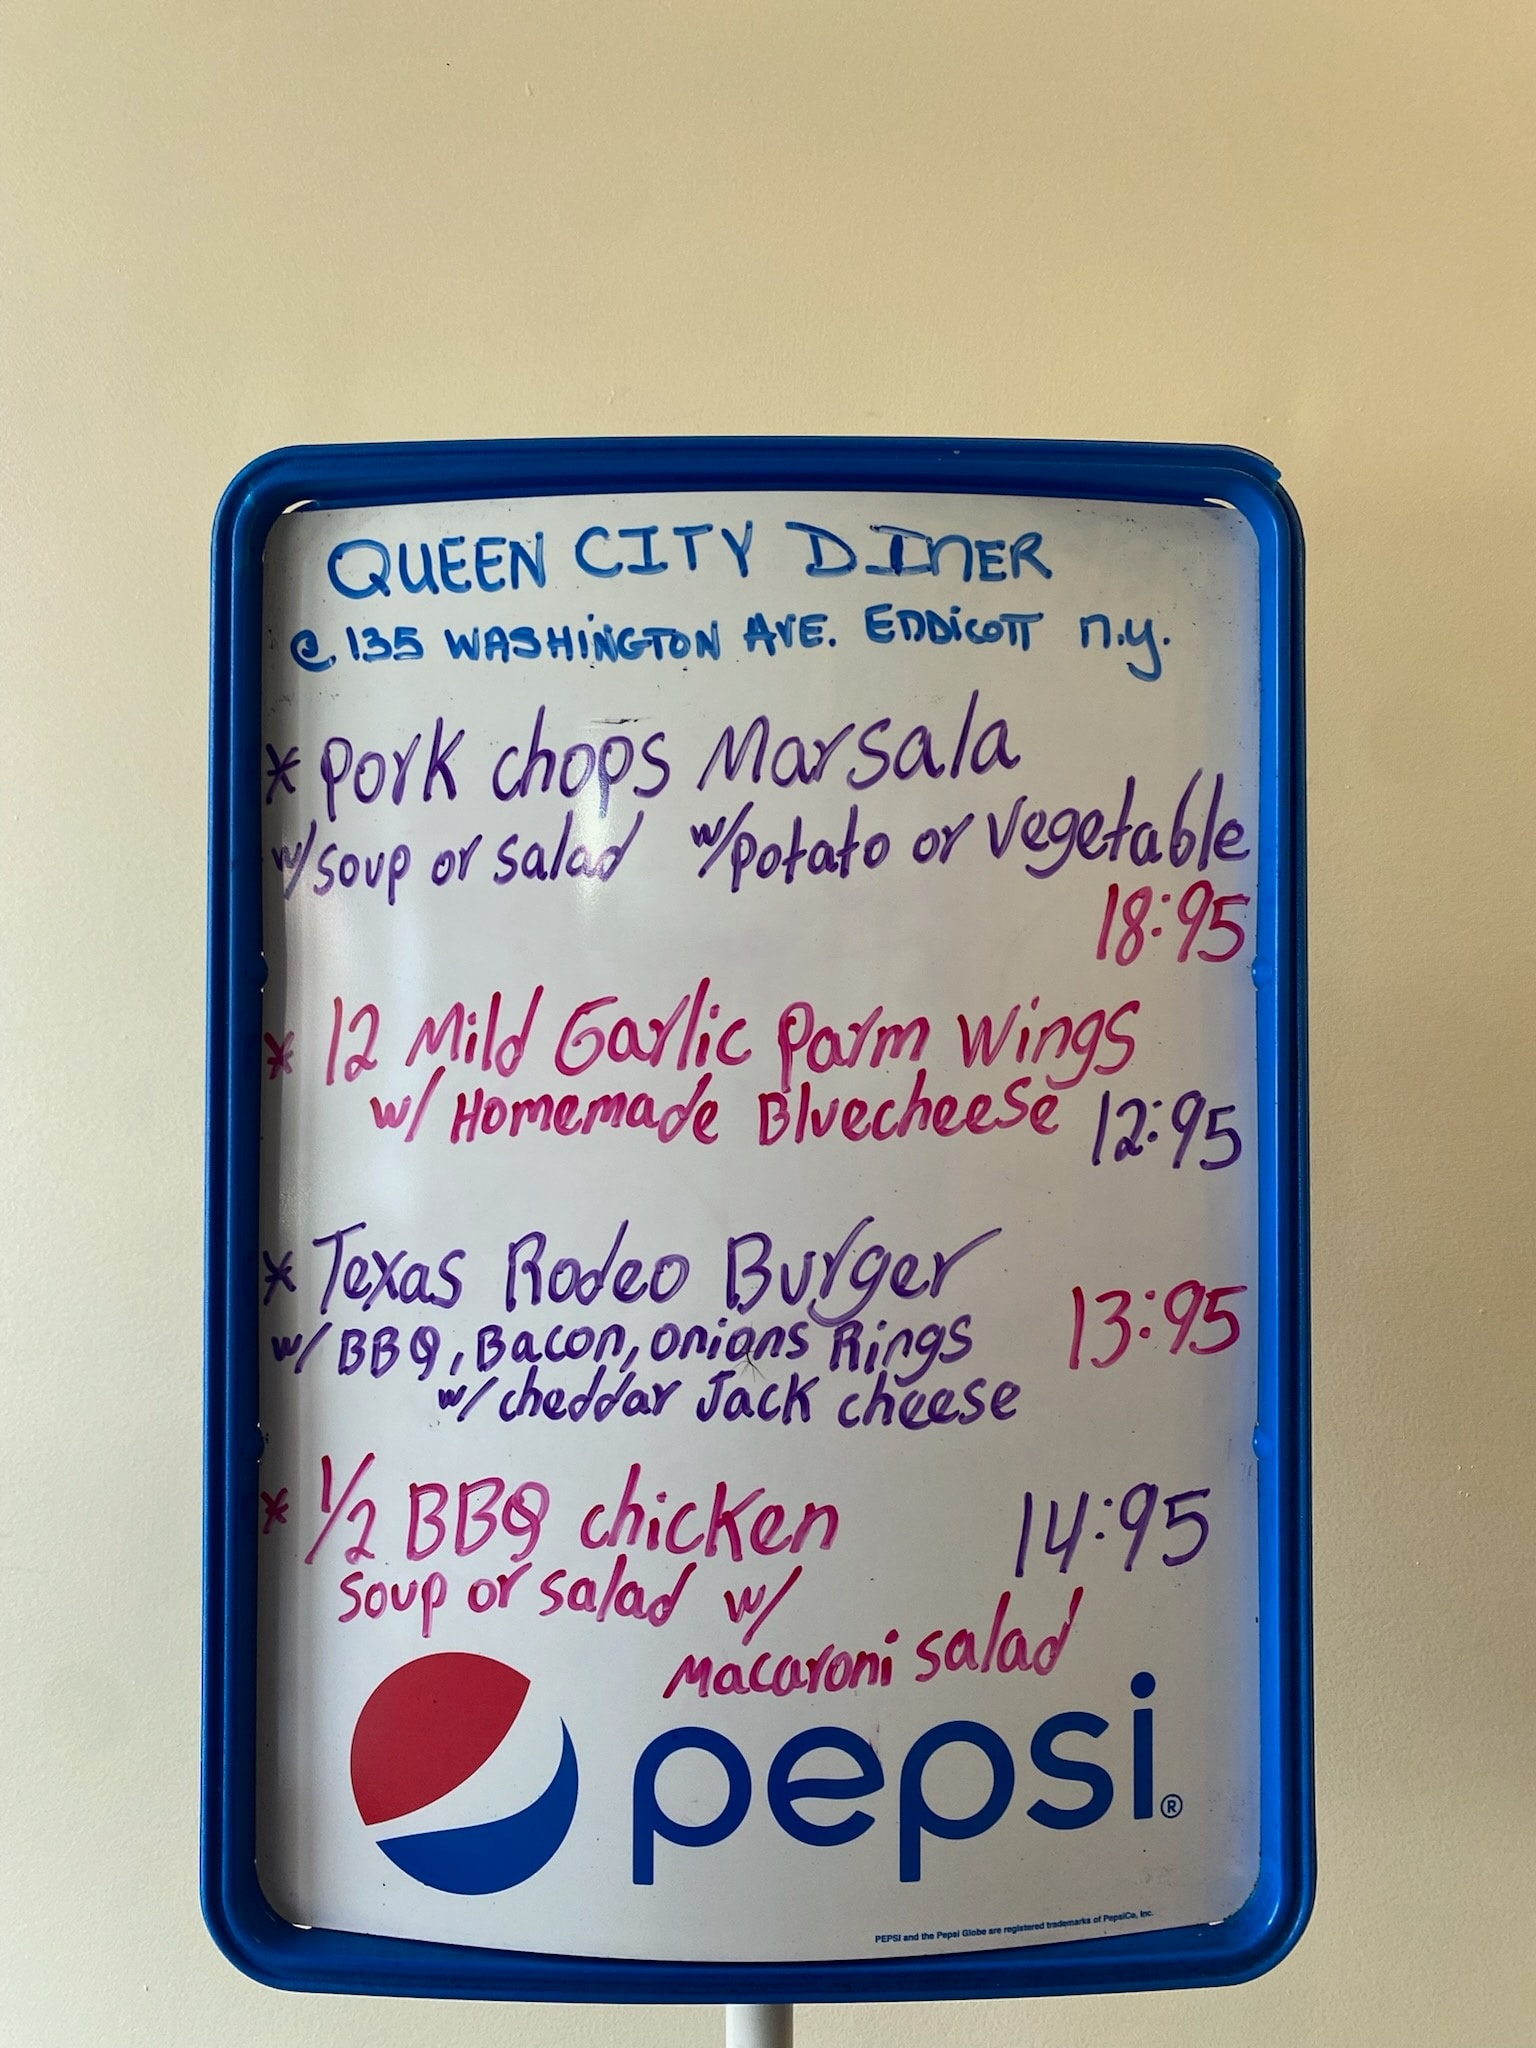 QUEEN CITY DINER
@ 135 WASHINGTON AVE. ENDICOTT N.Y.
* Pork chops Marsala
w/soup or salad w/potato or vegetable
18:95
* 12 Mild Garlic Parm Wings
w/ Homemade Bluecheese 12:95
* Texas Rodeo Burger
w/ BBQ, Bacon, onions Rings 13:95
w/ cheddar Jack cheese
* 1/2 BBQ chicken 14:95
soup or salad w/
Macaroni salad
pepsi®
PEPSI and the Pepsi Globe are registered trademarks of PepsiCo, Inc.